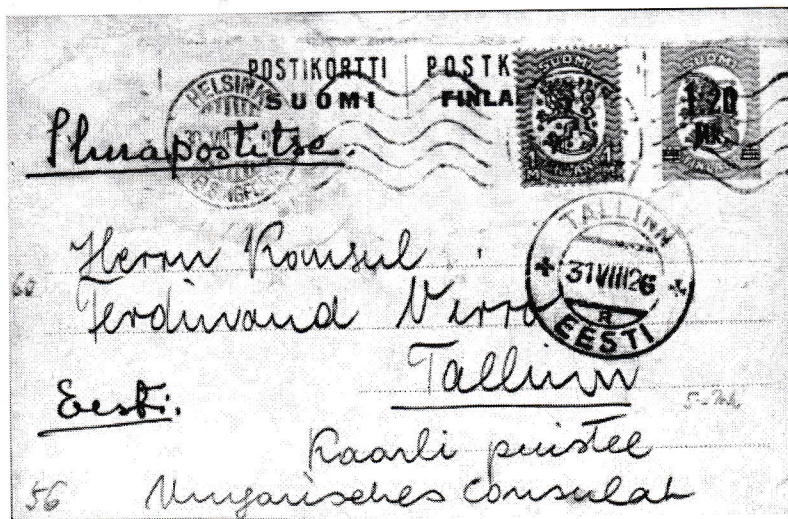 POSTIKORTTI POSTK
SUOMI FINLA
SUOMI
SUOMI
1:20
MK.
HELSINKI
Ilmapostitse.
TALLINN
31 VIII 26
EESTI
Herrn Konsul
Ferdinand
Tallinn
Eesti.
Kaarli puistee
Ungarisches Consulat
56